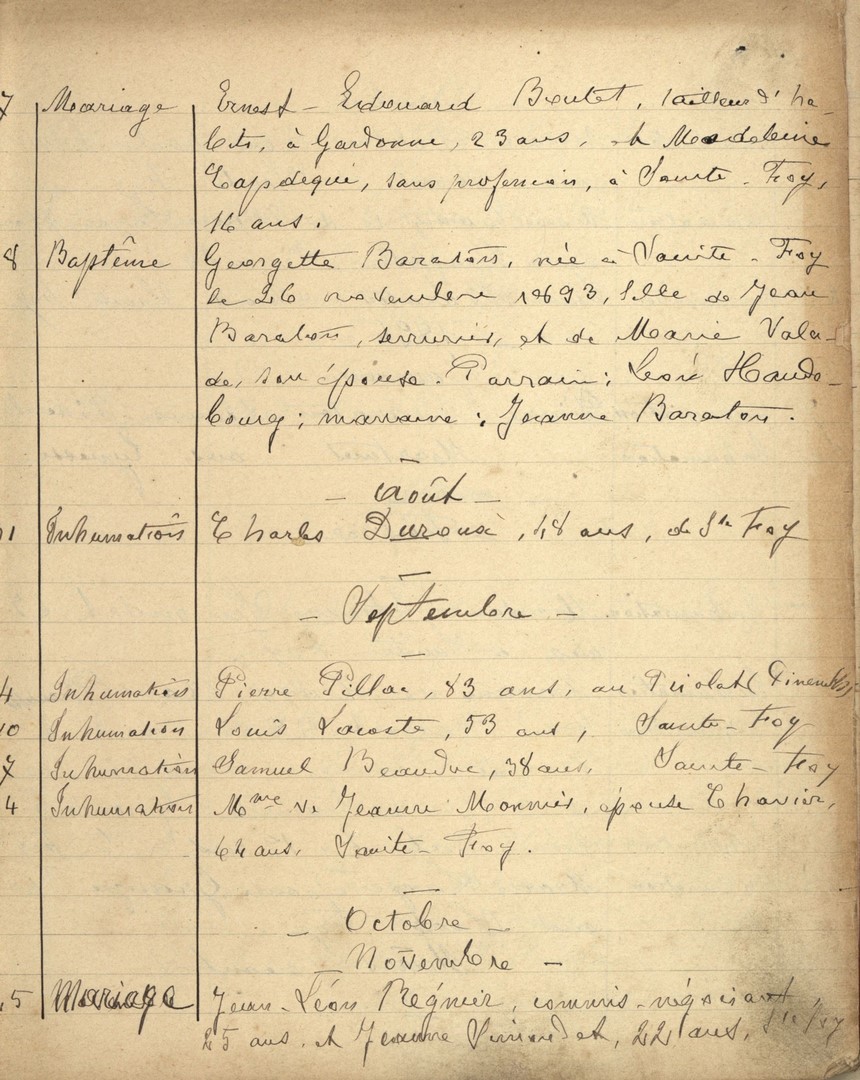 7 Mariage Ernest-Edouard Boutet, tailleur d'ha-
bits, à Gardonne, 23 ans, et Madeleine
Lapdequi, sans profession, à Sainte-Foy,
16 ans.
8 Baptême Georgette Baraton, née à Sainte-Foy
le 26 novembre 1893, fille de Jean
Baraton, serrurier, et de Marie Vala-
de, son épouse. Parrain: Léon Haudo-
bourg; marraine: Jeanne Baraton.
- Août -
1 Inhumation Charles Duroux, 48 ans, de Ste Foy
- Septembre -
4 Inhumation Pierre Pillac, 83 ans, au
0 Inhumation Louis Lacoste, 53 ans, Sainte-Foy
7 Inhumation Samuel Beauduc, 38 ans, Sainte-Foy
4 Inhumation Mme Ve Jeanne Monnier, épouse Chavier,
64 ans, Sainte-Foy.
- Octobre -
Novembre -
5 Mariage Jean-Léon Régnier, commis-négociant
25 ans, et Jeanne 22 ans, Ste Foy